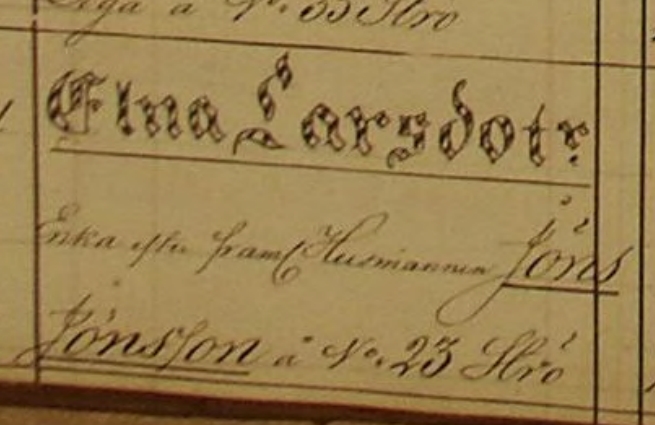 å No. 33 Strö
Elna Larsdotr.
Enka efter framl Husmannen Jöns
Jönsson å No. 23 Strö